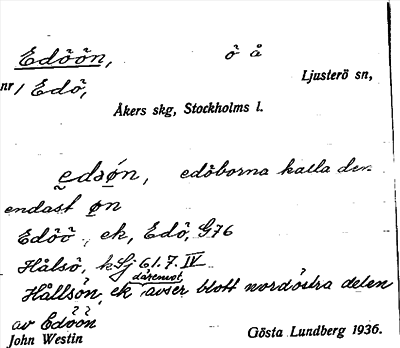 Edöön, ö å
Ljusterö sn,
nr 1 Edö,
Åkers skg, Stockholms l.
edaǿn, edöborna kalla den
endast øn
Edöö, ek, Edö, G76
Hålsö, k Sj 61.7. IV
däremot
Hållsön, ek avser blott nordöstra delen
av Edöön
John Westin Gösta Lundberg 1936.